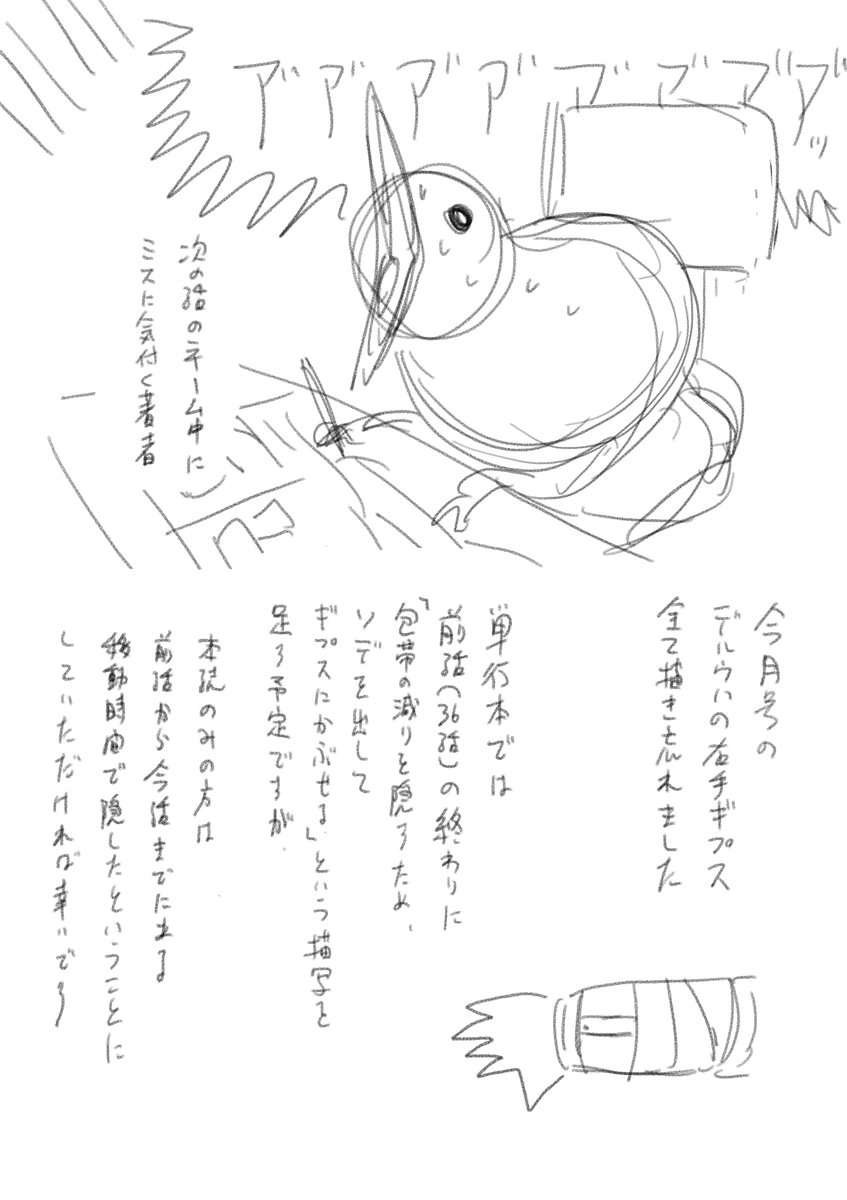 ア゛ア゛ア゛ア゛ア゛ア゛ア゛ア゛ッ
次の話のネーム中に
ミスに気付く著者
今月号の
デルウハの右手ギプス
全て描き忘れました
単行本では
前話(36話)の終わりに
「包帯の減りを隠すため、
ソデを出して
ギプスにかぶせる」という描写を
足す予定ですが、
本誌のみの方は
前話から今話までに至る
移動時間で隠したということに
していただければ幸いです